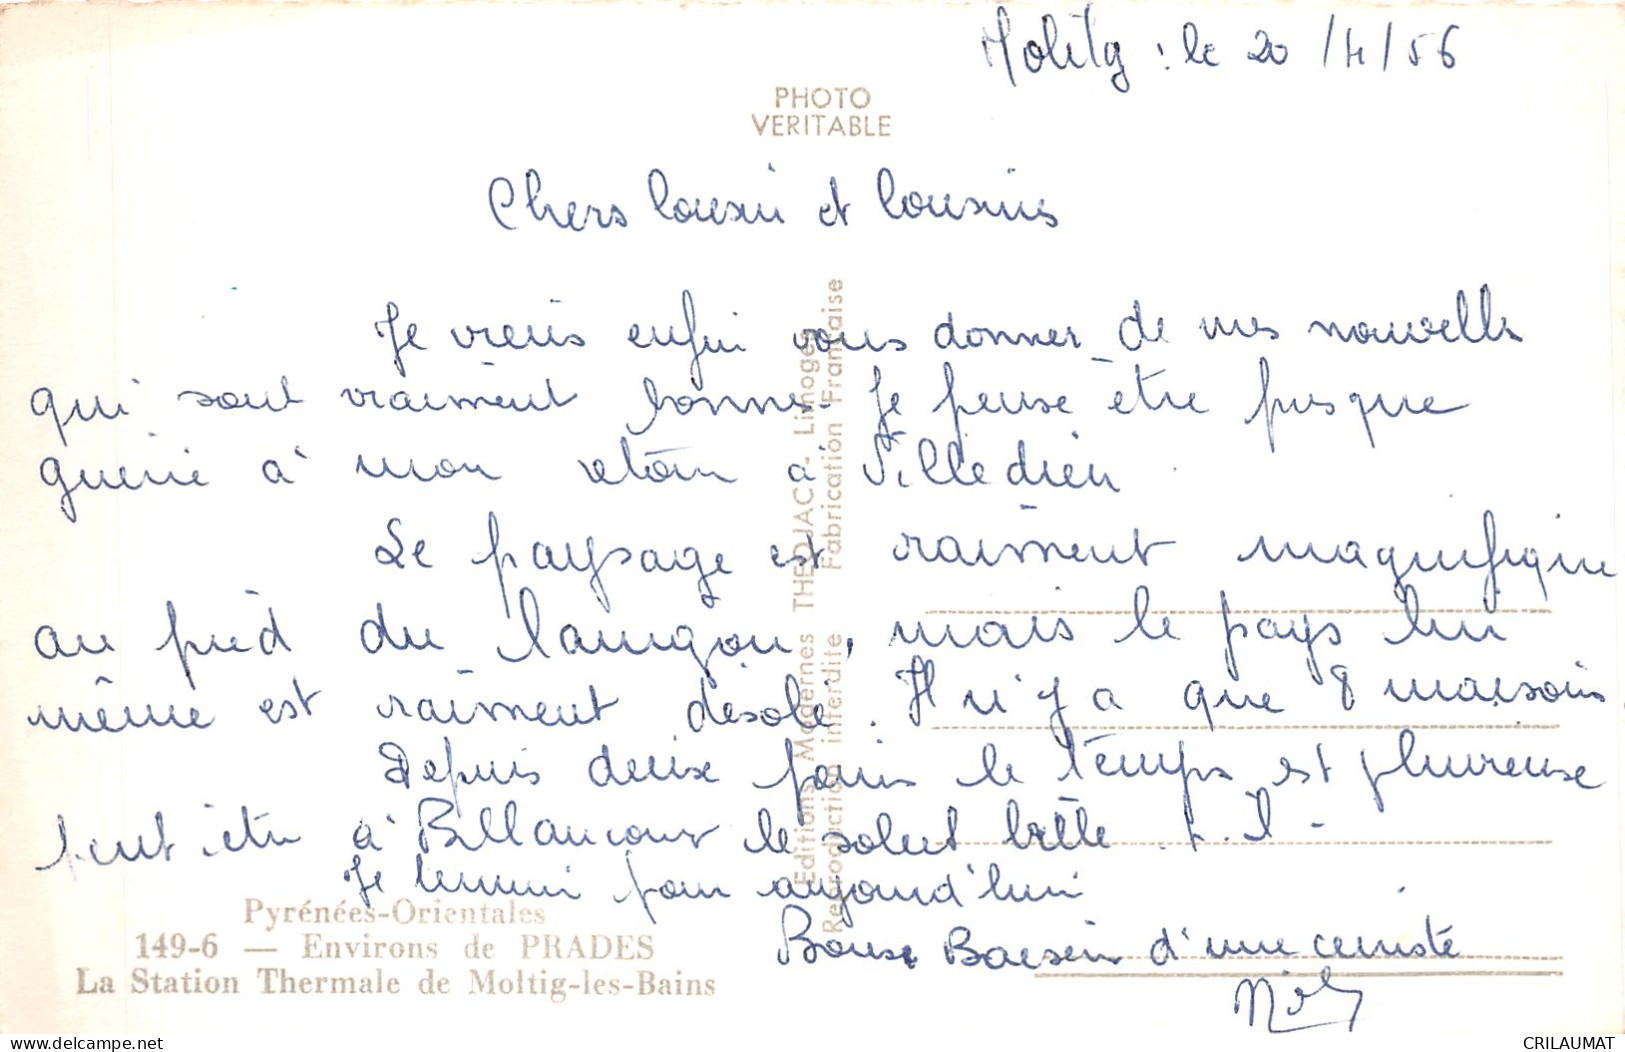 Molitg : le 20/4/56
PHOTO
VERITABLE
Chers Cousin et Cousins
Je viens enfin vous donner de mes nouvelles
qui sont vraiment bonnes. Je pense être presque
guerie à mon retour à Villedieu
Le paysage est vraiment magnifique
au pied du Canigou, mais le pays lui
même est vraiment désolé. Il n'y a que 8 maisons
Depuis deux jours le temps est pluvieuse
peut etre à Billancourt le soleil brille t. il.
Je termine pour aujourd'hui
Bonse Baesein d'une ceuriste
Editions Modernes THEOJAC - Limoges
Reproduction interdite Fabrication Française
Pyrénées-Orientales
149-6 — Environs de PRADES
La Station Thermale de Moltig-les-Bains
delcampe.net
CRILAUMAT